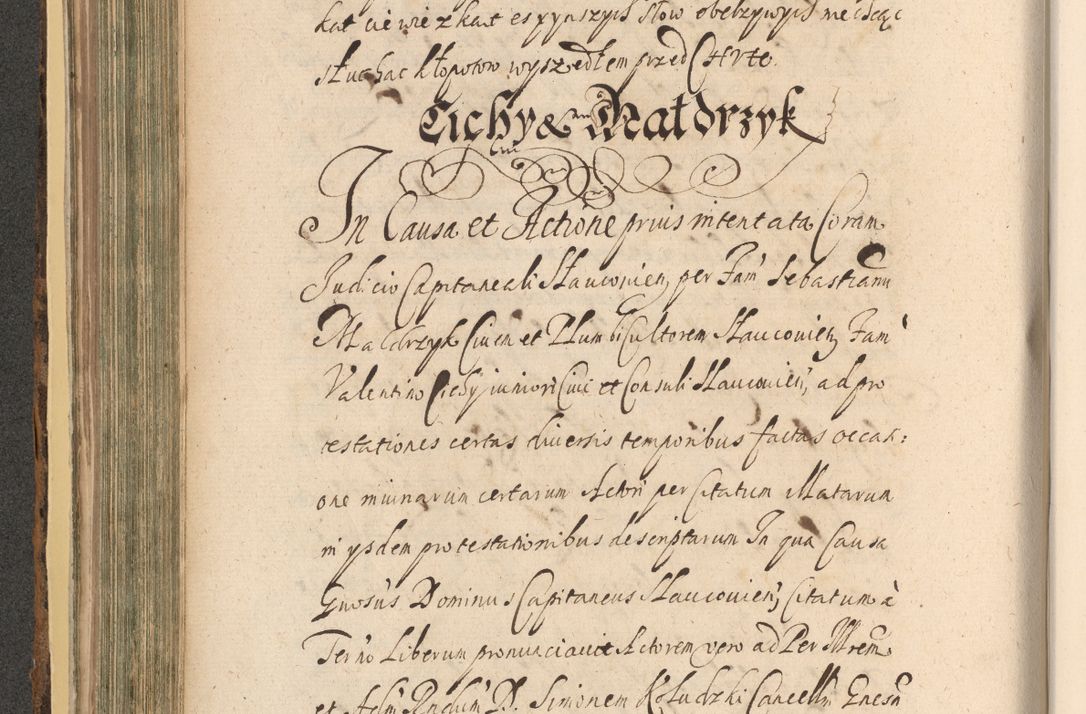 kat cie wiezkat es y ynszych słow obelzywych nie chcąc
słuchac kłopotow wyszedłem przed Chrte.
Cichy & Małdrzyk
cum
In Causa et Actione prius intentata Coram
Judicio Capitaneali Slauconien, per Fam Sebastianu
Maldrzyk Civen et Plumbi Cultorem Slauconien, Fam
Valentino Cichy juniori Civi et Consuli Slauconien, ad pro
testationes certas diversis temporibus factas occasi:
one minarum certarum Actori per Citatum Illatarum
in ysdem protestationibus descriptarum In qua Causa
Gnosus Dominus Capitaneus Slauconien, Citatum à
Ternō Liberum pronunciavit Actorem vero ad Per Illrem
et Adm Rndum D. Simonem Koludzki Cancell Gnesn